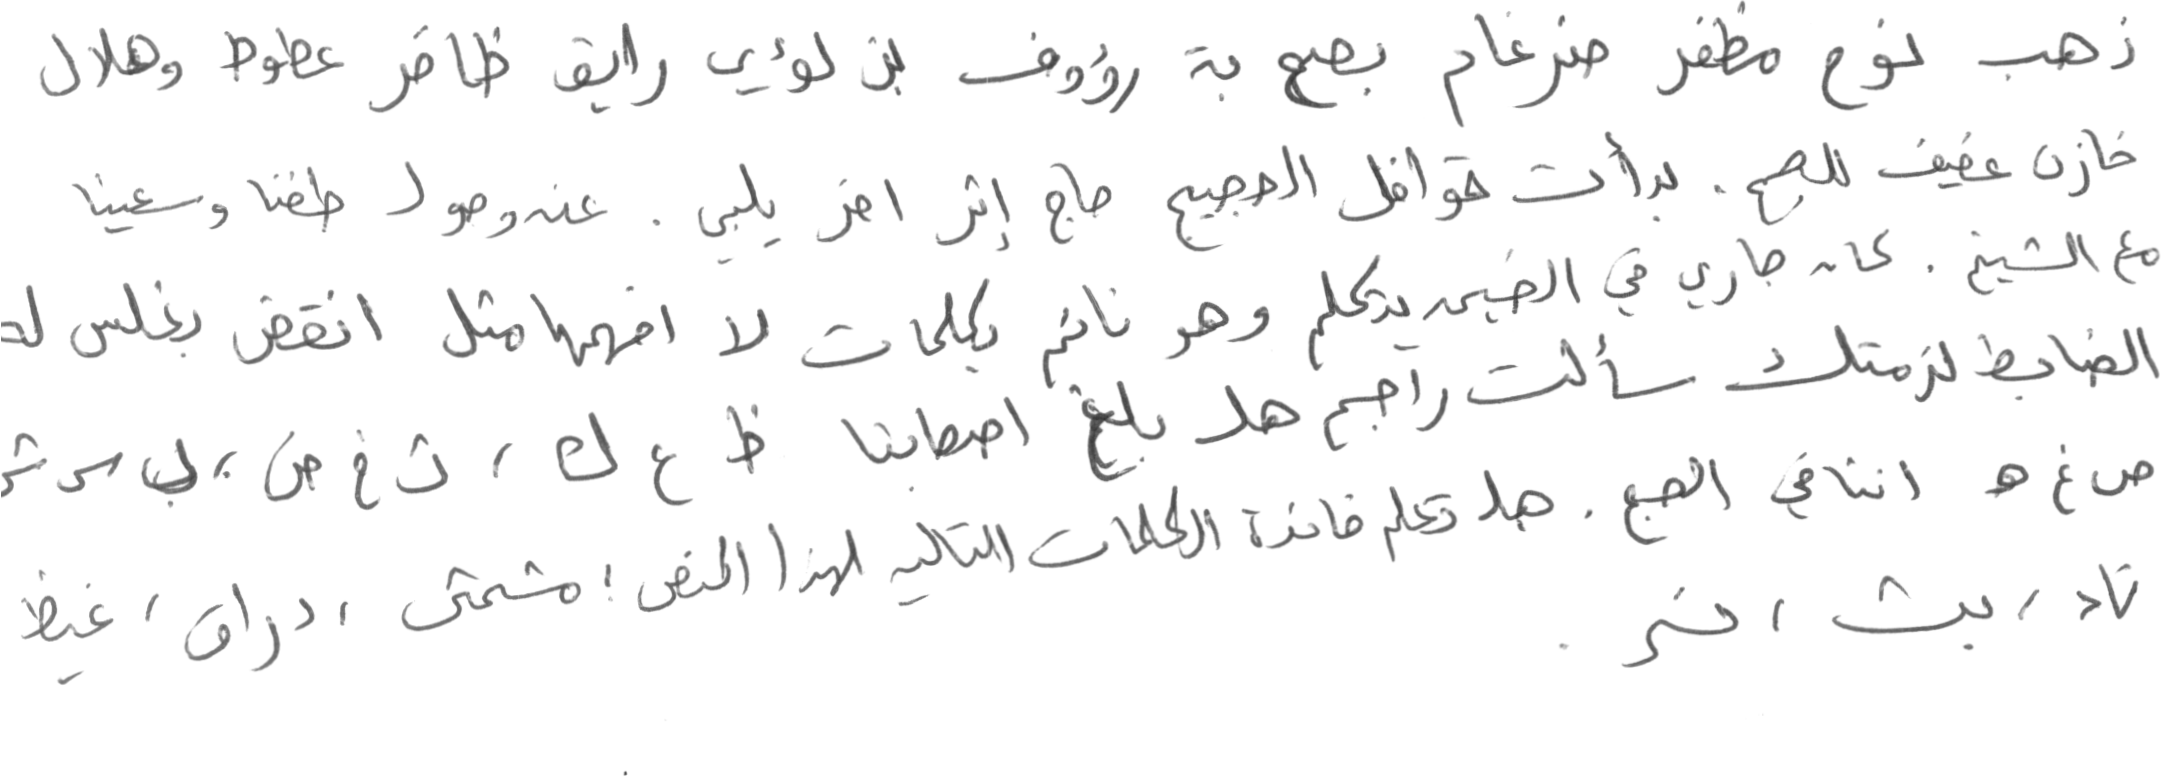 ذهب نوح مظفر ضرغام بصحبة رؤوف بن لؤي رايق ظافر عطوط وهلال
خازن عفيف للحج . بدأت قوافل الحجيج حاج إثر اخر يلبي . عند وصول طفنا وسعينا
مع الشيخ . كان جاري في الخيمه يتكلم وهو نائم بكلمات لا افهمها مثل انقض بغلس له
الضابط لزمتك سألت راجح هل بلغ اصحابنا ظ ع ك ، ث غ ض ، ب س ش
ص غ ه اننا في الحج . هل تعلم فائدة الكلمات التاليه لهذا النص : مشمش ، دراق ، غيظ
ناد ، بث ، خس .